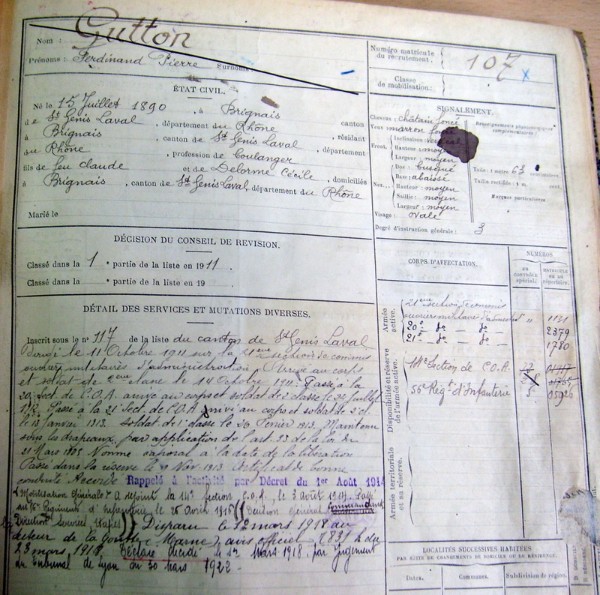 Nom : Gutton
Prénoms : Ferdinand Pierre Surnoms :
Numéro matricule
du recrutement : 107
Classe
de mobilisation :
ÉTAT CIVIL.
Né le 15 Juillet 1890, à Brignais, canton
d e St Genis Laval, département du Rhône, résidant
à Brignais, canton de St Genis Laval, département
du Rhône, profession de boulanger
fils de feu Claude et de Delorme Cécile, domiciliés
à Brignais, canton de St Genis Laval département du Rhône
Marié le
SIGNALEMENT.
Cheveux : châtain foncé
Yeux : marron
Inclinaison
Hauteur : moyen
Largeur : moyen
Dos : busqué
Base : abaissé
Hauteur : moyen
Saillie : moyen
Largeur : moyen
Visage : ovale
Renseignements physionomiques complémentaires :
Taille : 1 mètre 63 c
Taille rectifiée : 1 m. c.
Marques particulières :
Degré d'instruction générale : 3
DÉCISION DU CONSEIL DE REVISION.
Classé dans la 1 e partie de la liste en 1911.
Classé dans la e partie de la liste en 19
DÉTAIL DES SERVICES ET MUTATIONS DIVERSES.
Inscrit sous le n° 117 de la liste du canton de St Genis Laval
Dirigé le 11 Octobre 1911 sur la 21eme Section de commis
ouvriers militaires d'administration. Arrivé au corps
et soldat de 2eme classe le 14 Octobre 1911. Passé à la
20. Sect. de C.O.A. arrivé au corps et soldat de classe le Juillet
1912. Passé à la 21 Sect. de C.O.A. arrivé au corps et soldat de 2 cl
le 13 Janvier 1913. Soldat de 1 classe le 20 Février 1913. Maintenu
sous les drapeaux, par application de l'art. 33 de la loi du
21 Mars 1905. Nommé caporal à la date de sa libération
Passé dans la réserve le Nov 1913. Certificat de bonne
conduite Accordé. Rappelé à l'activité par Décret du 1er Août 1914
(Mobilisation Générale) A rejoint la 14e Section C.O.A. le 3 août 1914. Passé
au 56 Régiment d'Infanterie le 25 Avril 1915
Disparu le 12 mars 1918 au
secteur de la (Marne) avis officiel
23 mars 1918. Déclaré décédé le 12 Mars 1918, par Jugement
du tribunal de Lyon du 30 mars 1922.
CORPS D'AFFECTATION.
NUMÉROS
au contrôle spécial.
matricule ou au répertoire.
Armée active.
21eme Section de commis
ouvriers militaires d'administ. " 1121
20e de de 2379
21e de de 1780
Disponibilité et réserve de l'armée active.
14e Section de C.O.A.
56 Régt d'Infanterie
Armée territoriale et sa réserve.
LOCALITÉS SUCCESSIVES HABITÉES
PAR SUITE DE CHANGEMENTS DE DOMICILE OU DE RÉSIDENCE.
Dates. Communes. Subdivision de région.